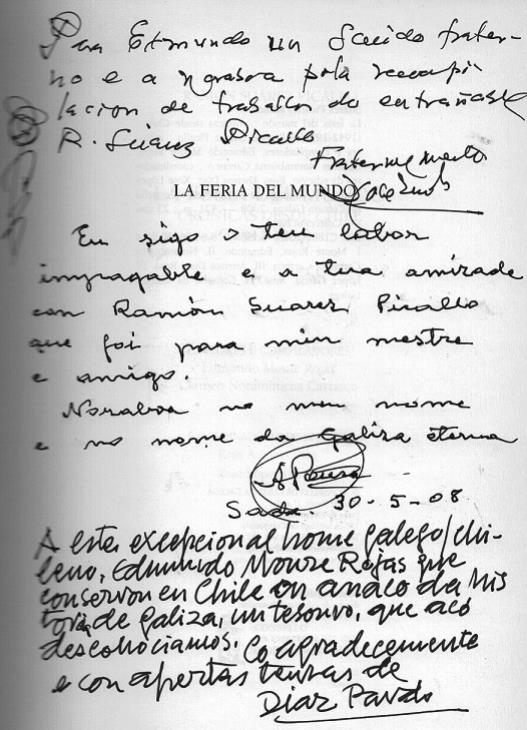 Para Edmundo un Saúdo frater-
no e a noraboa pola recompi
lacion de traballos do entrañable
R. Suárez Picallo
Fraternalmente
LA FERIA DEL MUNDO
Eu sigo o teu labor
impagable e a tua amizade
con Ramón Suarez Picallo
que foi para min mestre
e amigo.
Noraboa no meu nome
e no nome da Galiza eterna
Sada. 30-5-08
A este excepcional home galego/chi-
leno, Edmundo Moure Rojas que
conservou en Chile un anaco da his
toria de Galiza, un tesouro, que acó
descoñociamos. Co agradecemente
e con apertas tenras de
Diaz Pardo